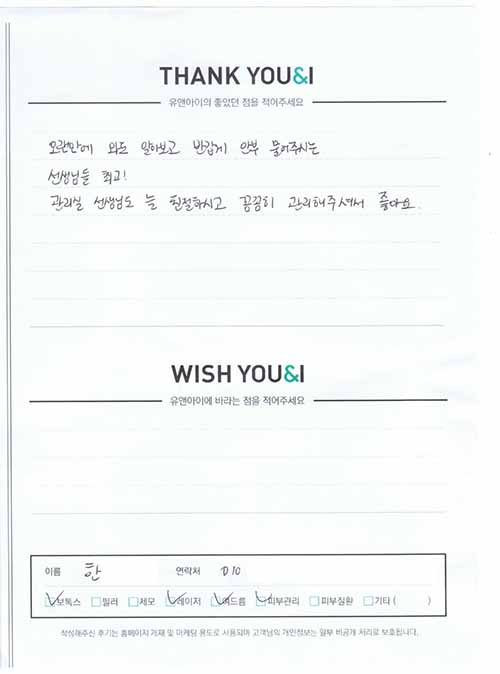 THANK YOU&I
유앤아이의 좋았던 점을 적어주세요
오랜만에 와도 알아보고 반갑게 안부 물어주시는
선생님들 최고!
관리실 선생님도 늘 친절하시고 꼼꼼히 관리해주셔서 좋아요.
WISH YOU&I
유앤아이에 바라는 점을 적어주세요
이름 한 연락처 010
보톡스 필러 제모 레이저 여드름 피부관리 피부질환 기타 ( )
작성해주신 후기는 홈페이지 게재 및 마케팅 용도로 사용되며 고객님의 개인정보는 일부 비공개 처리로 보호됩니다.